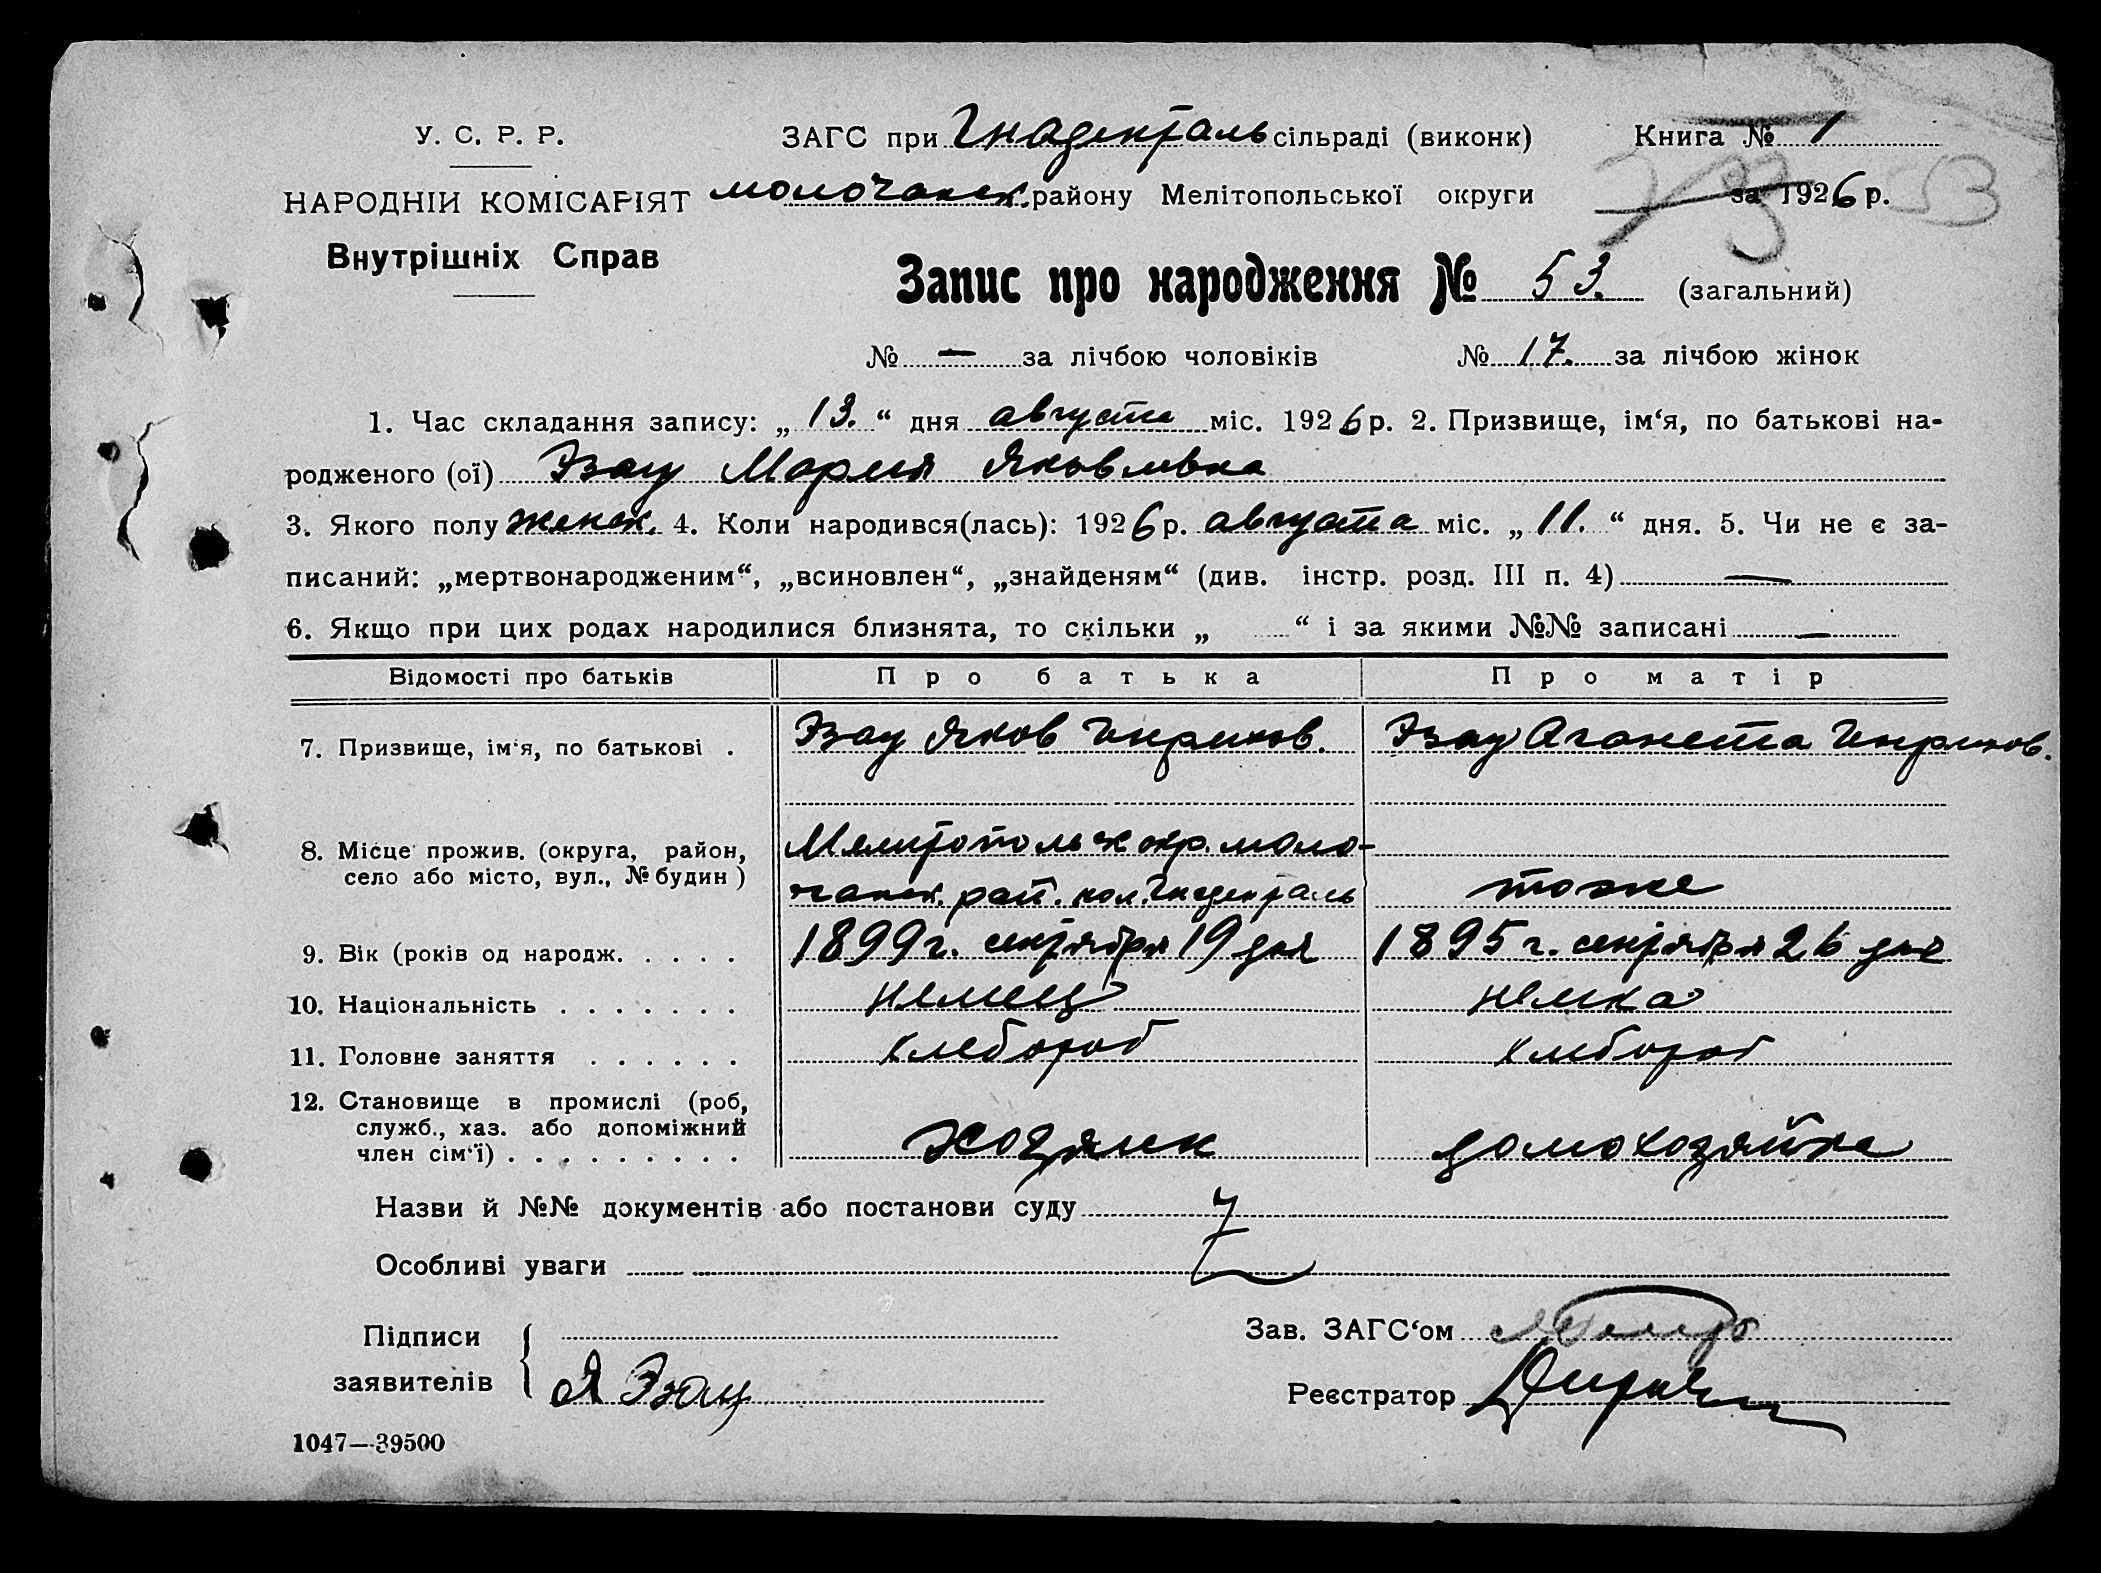 У. С. Р. Р.
НАРОДНІЙ КОМІСАРІЯТ
Внутрішніх Справ
ЗАГС при Гнаденталь сільраді (виконк)
молочанск. району Мелітопольської округи
Книга № 1
за 1926 р. 53
Запис про народження № 53. (загальний)
№ — за лічбою чоловіків № 17. за лічбою жінок
1. Час складання запису: „ 13. “ дня августа міс. 1926 р. 2. Призвище, ім‘я, по батькові на-
родженого (ої) Эзау Мария Яковлевна
3. Якого полу женск. 4. Коли народився(лась): 1926 р. августа міс. „ 11. “ дня. 5. Чи не є за-
писаний: „мертвонародженим“, „всиновлен“, „знайденям“ (див. інстр. розд. III п. 4) —
6. Якщо при цих родах народилися близнята, то скільки „ “ і за якими №№ записані —
Відомості про батьків Про батька Про матір
7. Призвище, ім‘я, по батькові . Эзау Яков Генрихов. Эзау Аганета Генрихов.
8. Місце прожив. (округа, район, село або місто, вул., № будин) Мелитопольск окр. моло-
чанск. рай. кол. Гнаденталь тоже
9. Вік (років од народж. . . . . 1899 г. сентября 19 дня 1895 г. сентября 26 дня
10. Національність . . . . . . . немец немка
11. Головне заняття . . . . . . хлебороб хлебороб
12. Становище в промислі (роб, служб., хаз. або допоміжний член сім‘ї) . . . . . . . . . хозяин домохозяйка
Назви й №№ документів або постанови суду
Особливі уваги
Підписи
заявителів Я Эзау
Зав. ЗАГС‘ом
Реєстратор
1047—39500